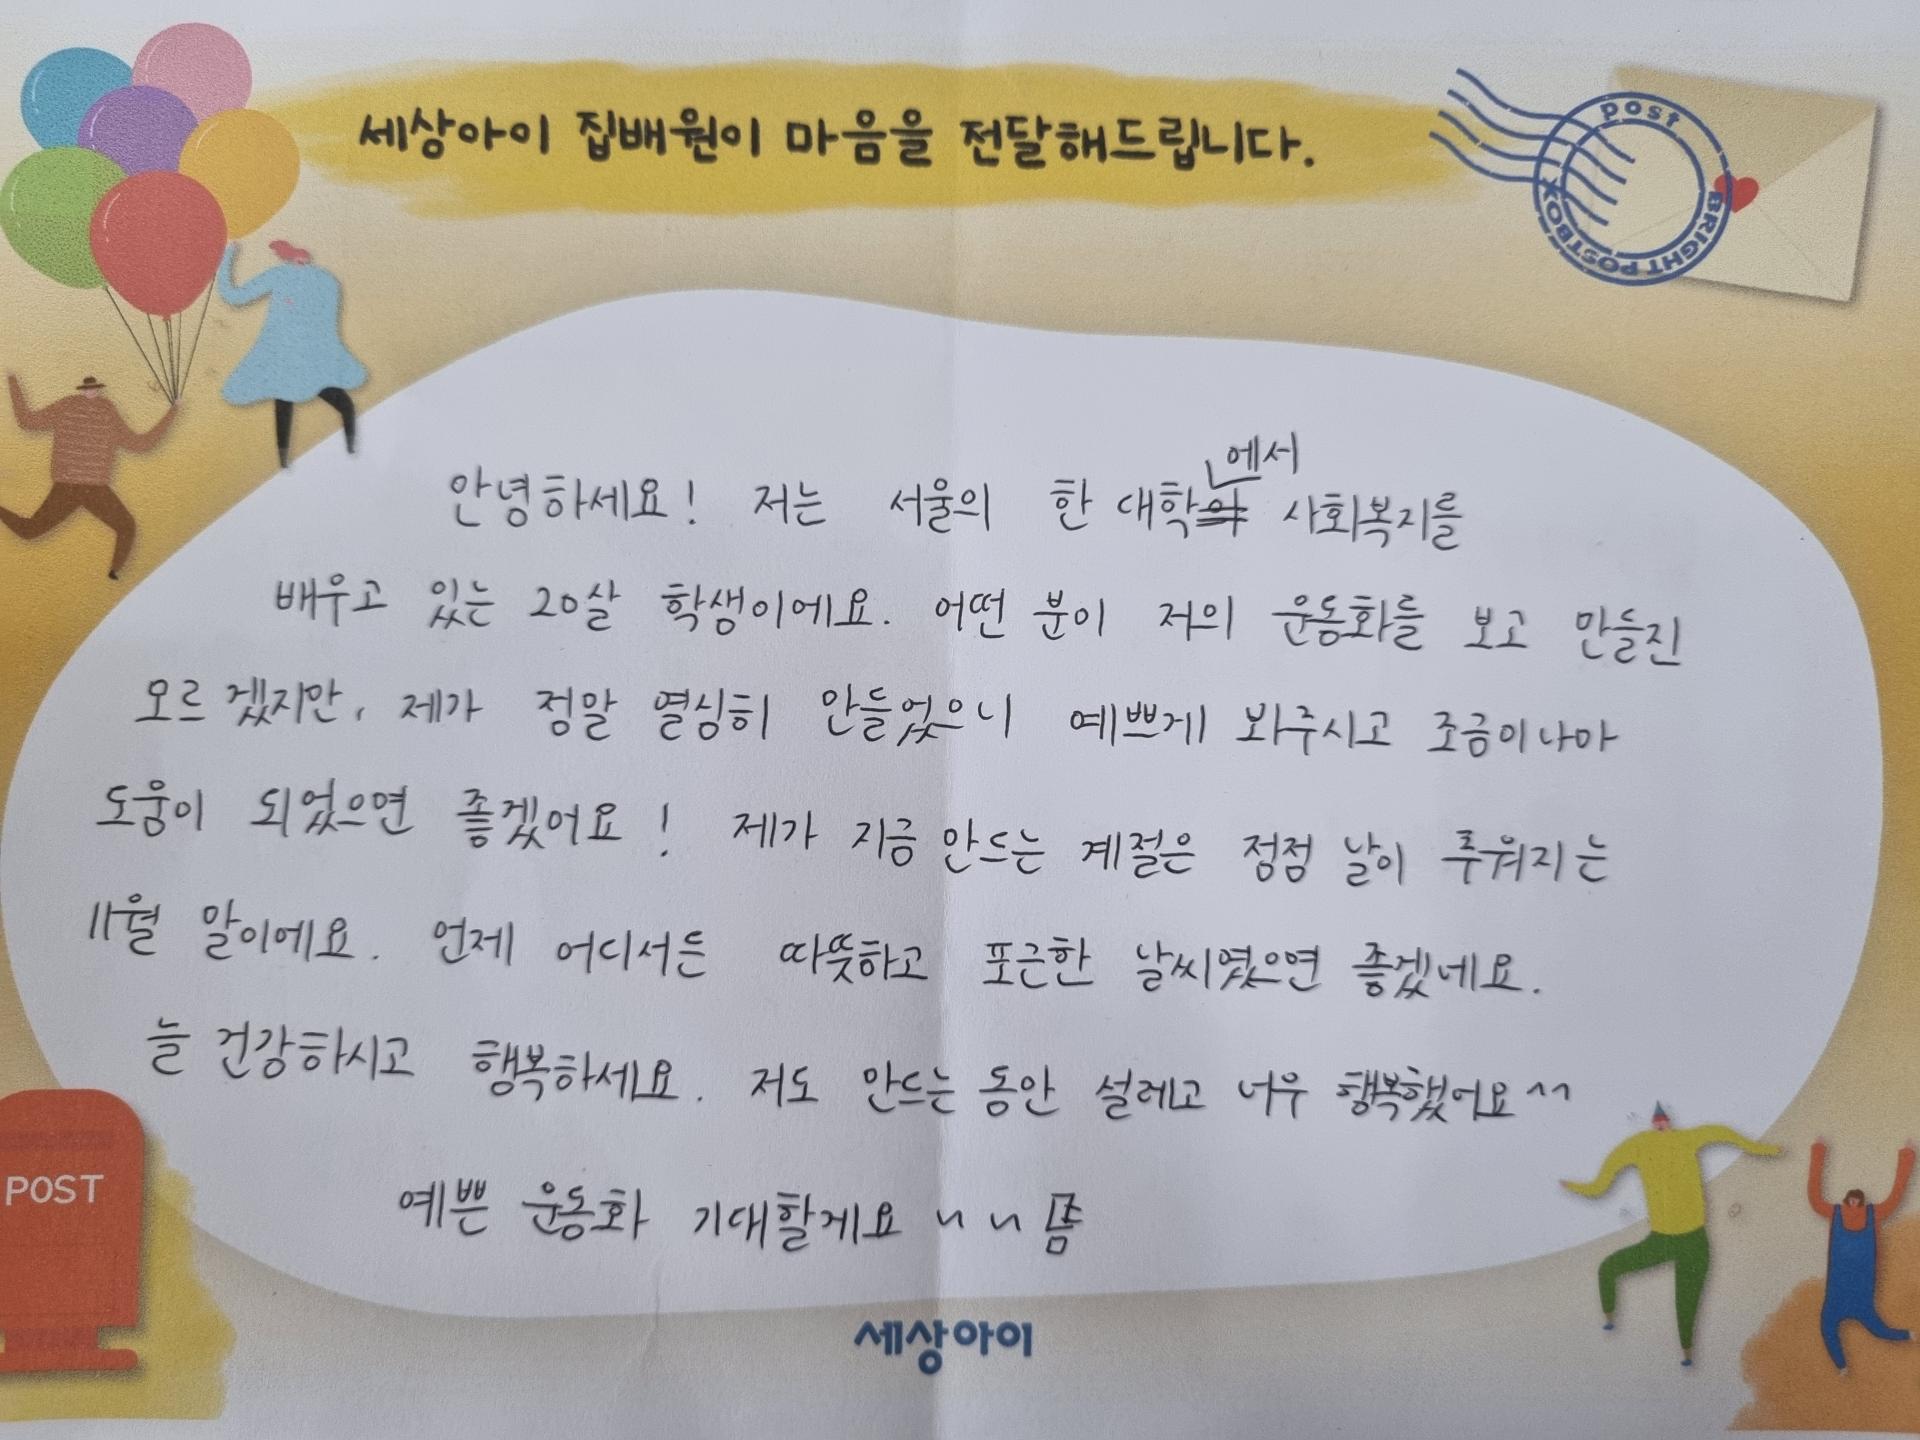 세상아이 집배원이 마음을 전달해드립니다.
post
BRIGHT POSTBOX
에서
안녕하세요! 저는 서울의 한 대학 사회복지를
배우고 있는 20살 학생이에요. 어떤 분이 저의 운동화를 보고 만들진
모르겠지만, 제가 정말 열심히 만들었으니 예쁘게 봐주시고 조금이나마
도움이 되었으면 좋겠어요! 제가 지금 만드는 계절은 정점 날이 추워지는
11월 말이에요. 언제 어디서든 따뜻하고 포근한 날씨였으면 좋겠네요.
늘 건강하시고 행복하세요. 저도 만드는 동안 설레고 너무 행복했어요^^
예쁜 운동화 기대할게요 ~~
POST
세상아이